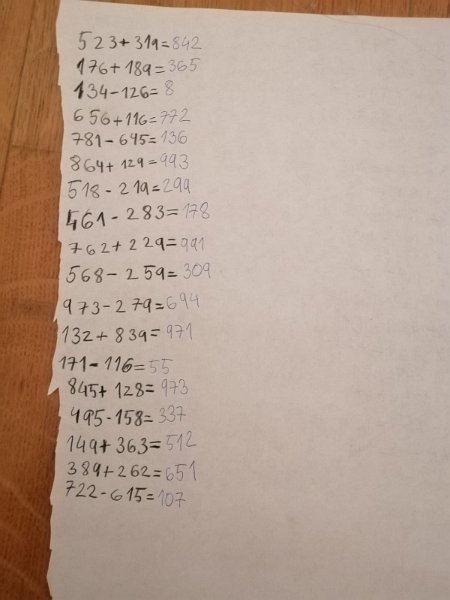 523+319=842
176+189=365
134-126=8
656+116=772
781-645=136
864+129=993
518-219=299
461-283=178
762+229=991
568-259=309
973-279=694
132+839=971
171-116=55
845+128=973
495-158=337
149+363=512
389+262=651
722-615=107